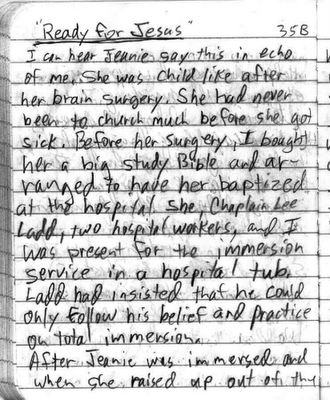 "Ready for Jesus" 35B
I can hear Jeanie say this in echo
of me. She was child like after
her brain surgery. She had never
been to church much before she got
sick. Before her surgery, I bought
her a big study Bible and ar-
ranged to have her baptized
at the hospital she, Chaplain Lee
Ladd, two hospital workers, and I
was present for the immersion
service in a hospital tub.
Ladd had insisted that he could
only follow his belief and practice
on total immersion.
After Jeanie was immersed and
when she raised up out of the